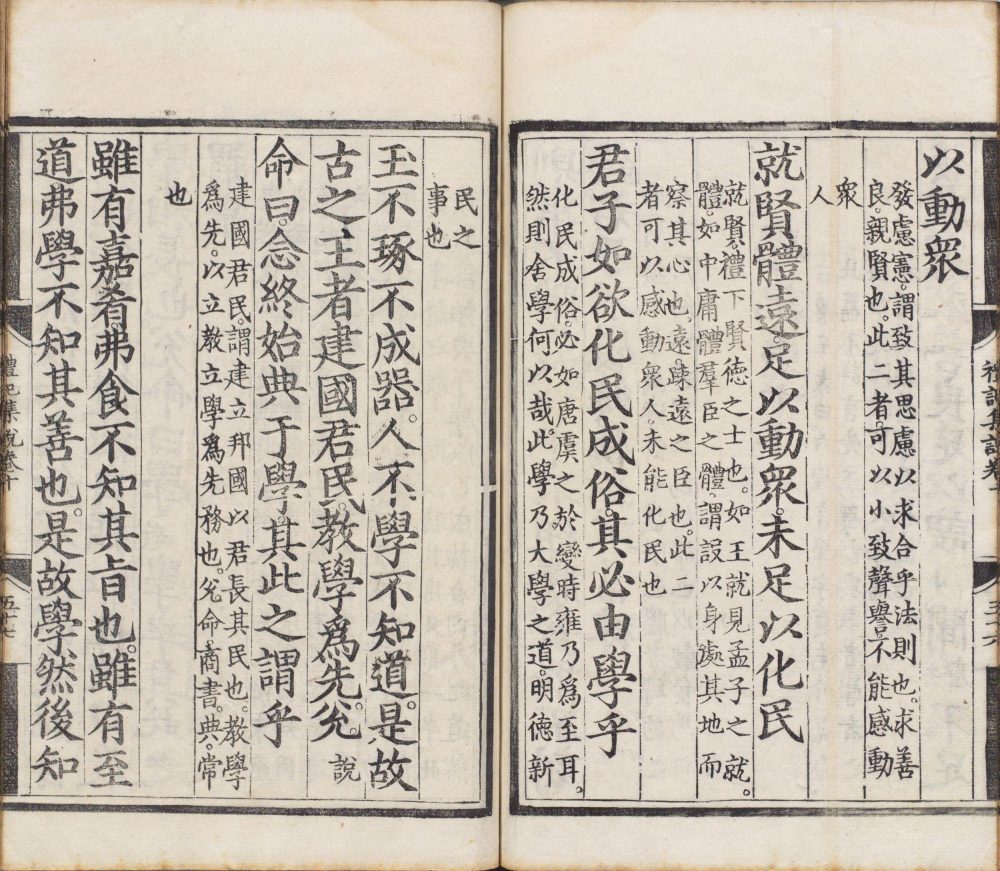 以動衆
發慮憲。謂致其思慮以求合乎法則也。求善
良。親賢也。此二者。可以小致聲譽。不能感動
衆
人
就賢體遠。足以動衆。未足以化民
就賢。禮下賢德之士也。如王就見孟子之就。
體。如中庸體羣臣之體。謂設以身處其地。而
察其心也。遠。踈遠之臣也。此二
者可以感動衆人。未能化民也
君子如欲化民成俗。其必由學乎
化民成俗。必如唐虞之於變時雍乃爲至耳。
然則舍學何以哉。此學乃大學之道。明德新
民之
事也
玉不琢不成器。人不學不知道。是故
古之王者建國君民。教學爲先。兊說
命曰。念終始典于學。其此之謂乎
建國君民。謂建立邦國以君長其民也。教學
爲先。以立教立學爲先務也。兊命。商書。典。常
也
雖有嘉肴。弗食不知其旨也。雖有至
道弗學不知其善也。是故學然後知
禮記集說卷十
五十七